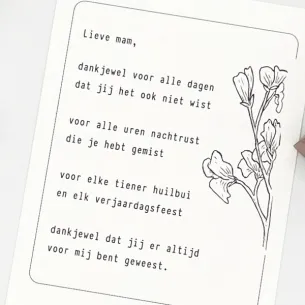 Lieve mam,
dankjewel voor alle dagen
dat jij het ook niet wist
voor alle uren nachtrust
die je hebt gemist
voor elke tiener huilbui
en elk verjaardagsfeest
dankjewel dat jij er altijd
voor mij bent geweest.